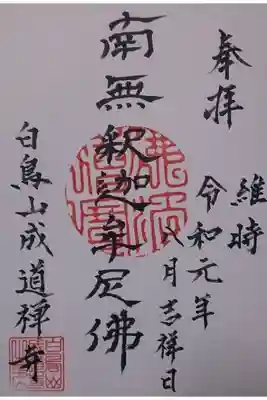 奉拝
維時
令和元年
八月吉祥日
南無釈迦牟尼佛
白鳥山成道禅寺